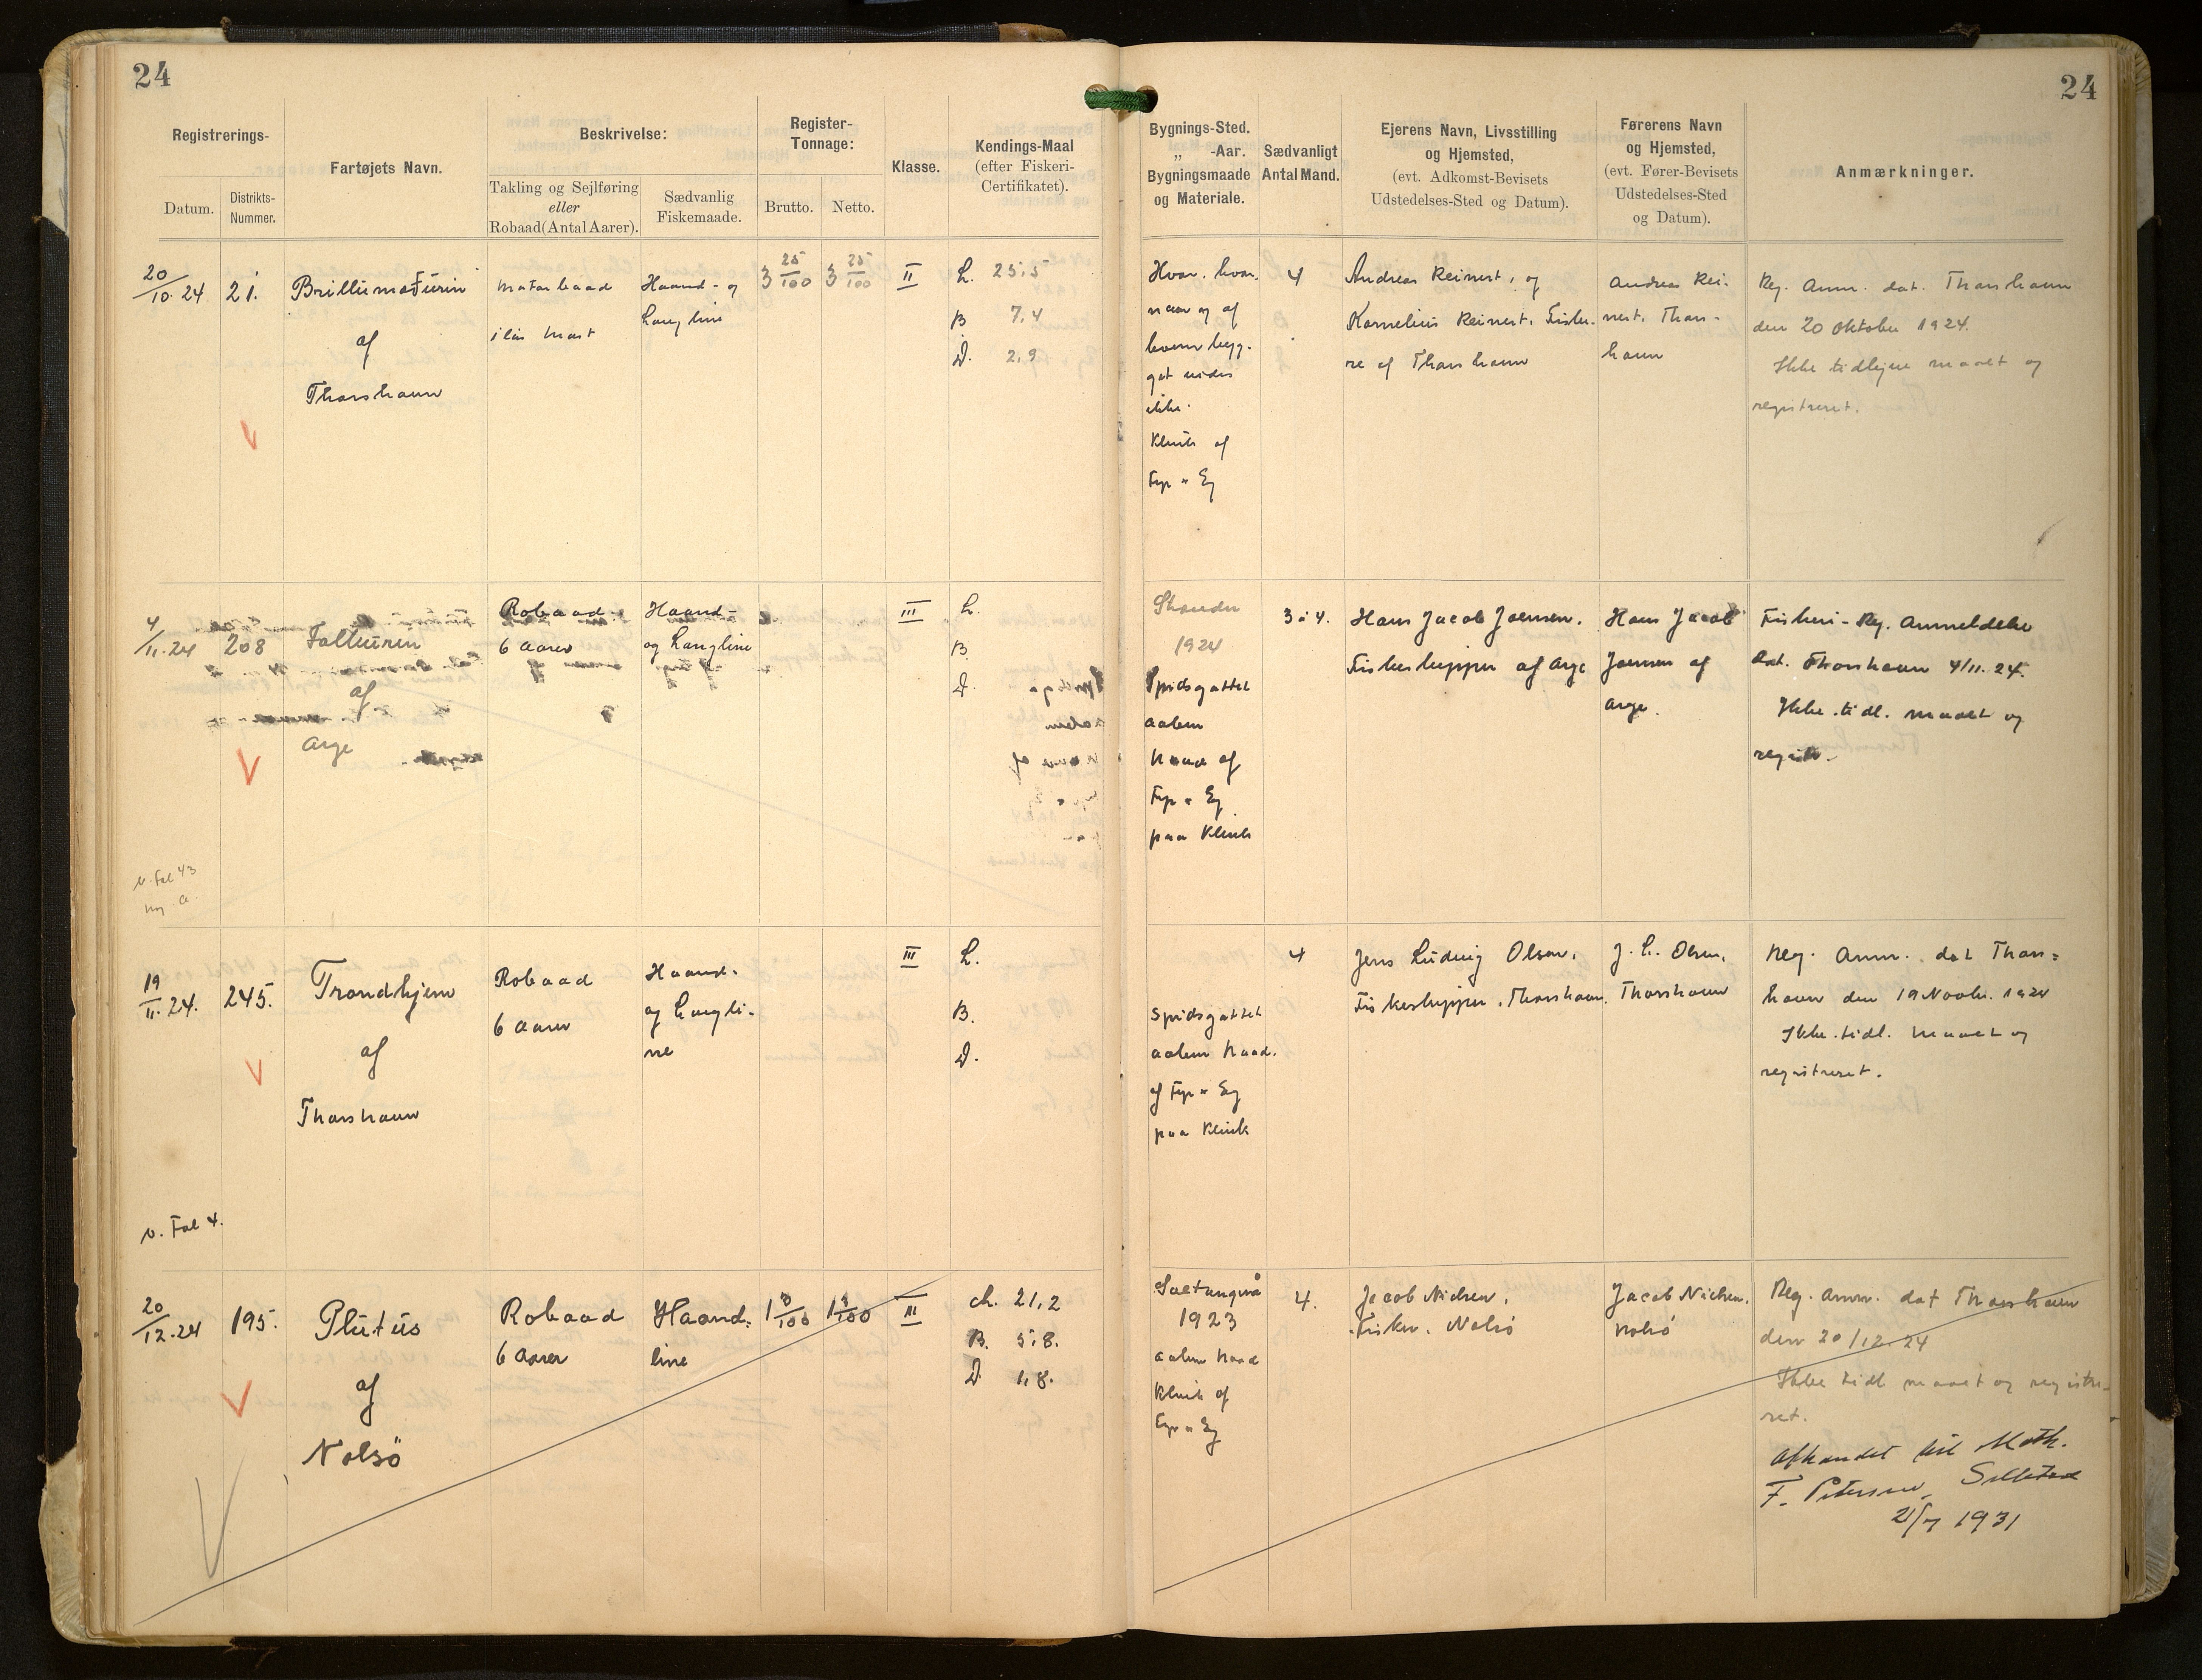 24
24
Registrerings-
Datum.
Distrikts-
Nummer.
Fartøjets Navn.
Beskrivelse:
Takling og Sejlføring
eller
Robaad (Antal Aarer).
Sædvanlig
Fiskemaade.
Register-
Tonnage:
Brutto.
Netto.
Klasse.
Kendings-Maal
(efter Fiskeri-
Certifikatet).
Bygnings-Sted.
„ -Aar.
Bygningsmaade
og Materiale.
Sædvanligt
Antal Mand.
Ejerens Navn, Livsstilling
og Hjemsted,
(evt. Adkomst-Bevisets
Udstedelses-Sted og Datum).
Førerens Navn
og Hjemsted,
(evt. Fører-Bevisets
Udstedelses-Sted
og Datum).
Anmærkninger.
20/10.24
21.
Brillumaðurin
af
Thorshavn
Motorbaad
1 lös Mast
Haand- og
Langline
3 25/100
3 25/100
II
L. 25,5
B 7,4
D. 2,9
Hvor, hvor-
naar og af
hvem byg-
get vides
ikke.
Klink af
Fyr & Eg
4
Andreas Reinert, og
Kornelius Reinert, Fiske-
re af Thorshavn
Andreas Rei-
nert, Thors-
havn
Reg. Anm. dat. Thorshavn
den 20 Oktober 1924.
Ikke tidligere maalt og
registreret.
4/11.24
208
Falkurin
af
Arge
Robaad
6 Aarer
Haand-
og Langline
III
L.
B.
D.
Strander
1924
Spidsgattet
aaben
Baad af
Fyr & Eg
paa Klink
3 à 4.
Hans Jacob Joensen,
Fiskeskipper af Arge
Hans Jacob
Joensen af
Arge.
Fiskeri-Reg. Anmeldelse
dat. Thorshavn 4/11.24.
Ikke tidl. maalt og
registr.
v. Fol 43
19/11.24.
245.
Trondhjem
af
Thorshavn
Robaad
6 Aarer
Haand-
og Langli-
ne
III
L.
B.
D.
Spidsgattet
aaben Baad.
af Fyr & Eg
paa Klink
4
Jens Ludvig Olsen,
Fiskeskipper, Thorshavn.
J. L. Olsen,
Thorshavn
Reg. Anm. dat Thors-
havn den 19 Novbr. 1924
Ikke tidl. maalt og
registreret.
v. Fol 4.
20/12.24
195.
Plutus
af
Nolsö
Robaad
6 Aarer
Haand-
line
III
L. 21,2
B. 5,8.
D 1,8.
Saltangará
1923
aaben Baad
Klink af
Fyr & Eg
4.
Jacob Nielsen,
Fisker, Nolsö
Jacob Nielsen,
Nolsö
Reg. Anm. dat Thorshavn
den 20/12.24
Ikke tidl maalt og registre-
ret.
Afhændet til Math.
F. Petersen, Selletræ
21/7 1931